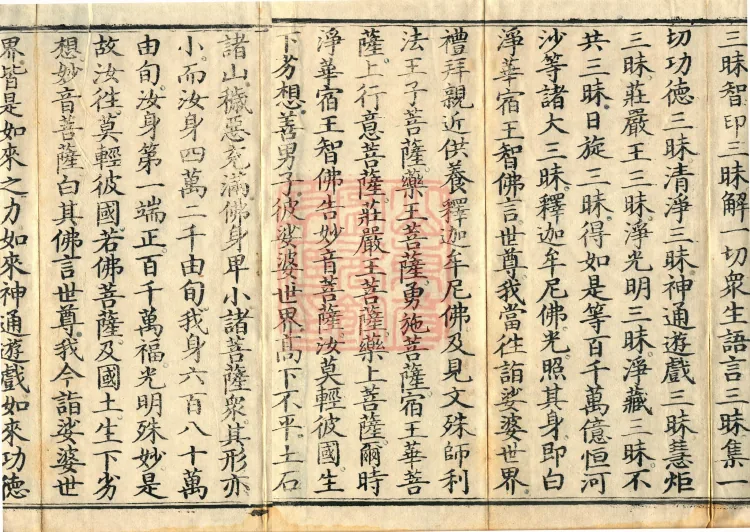 三昧智印三昧解一切衆生語言三昧集一
切功德三昧清淨三昧神通遊戲三昧慧炬
三昧莊嚴王三昧淨光明三昧淨藏三昧不
共三昧日旋三昧得如是等百千萬億恒河
沙等諸大三昧釋迦牟尼佛光照其身即白
淨華宿王智佛言世尊我當往詣娑婆世界
禮拜親近供養釋迦牟尼佛及見文殊師利
法王子菩薩藥王菩薩勇施菩薩宿王華菩
薩上行意菩薩莊嚴王菩薩藥上菩薩爾時
淨華宿王智佛告妙音菩薩汝莫輕彼國生
下劣想善男子彼娑婆世界高下不平土石
諸山穢惡充滿佛身卑小諸菩薩衆其形亦
小而汝身四萬二千由旬我身六百八十萬
由旬汝身第一端正百千萬福光明殊妙是
故汝往莫輕彼國若佛菩薩及國土生下劣
想妙音菩薩白其佛言世尊我今詣娑婆世
界皆是如來之力如來神通遊戲如來功德